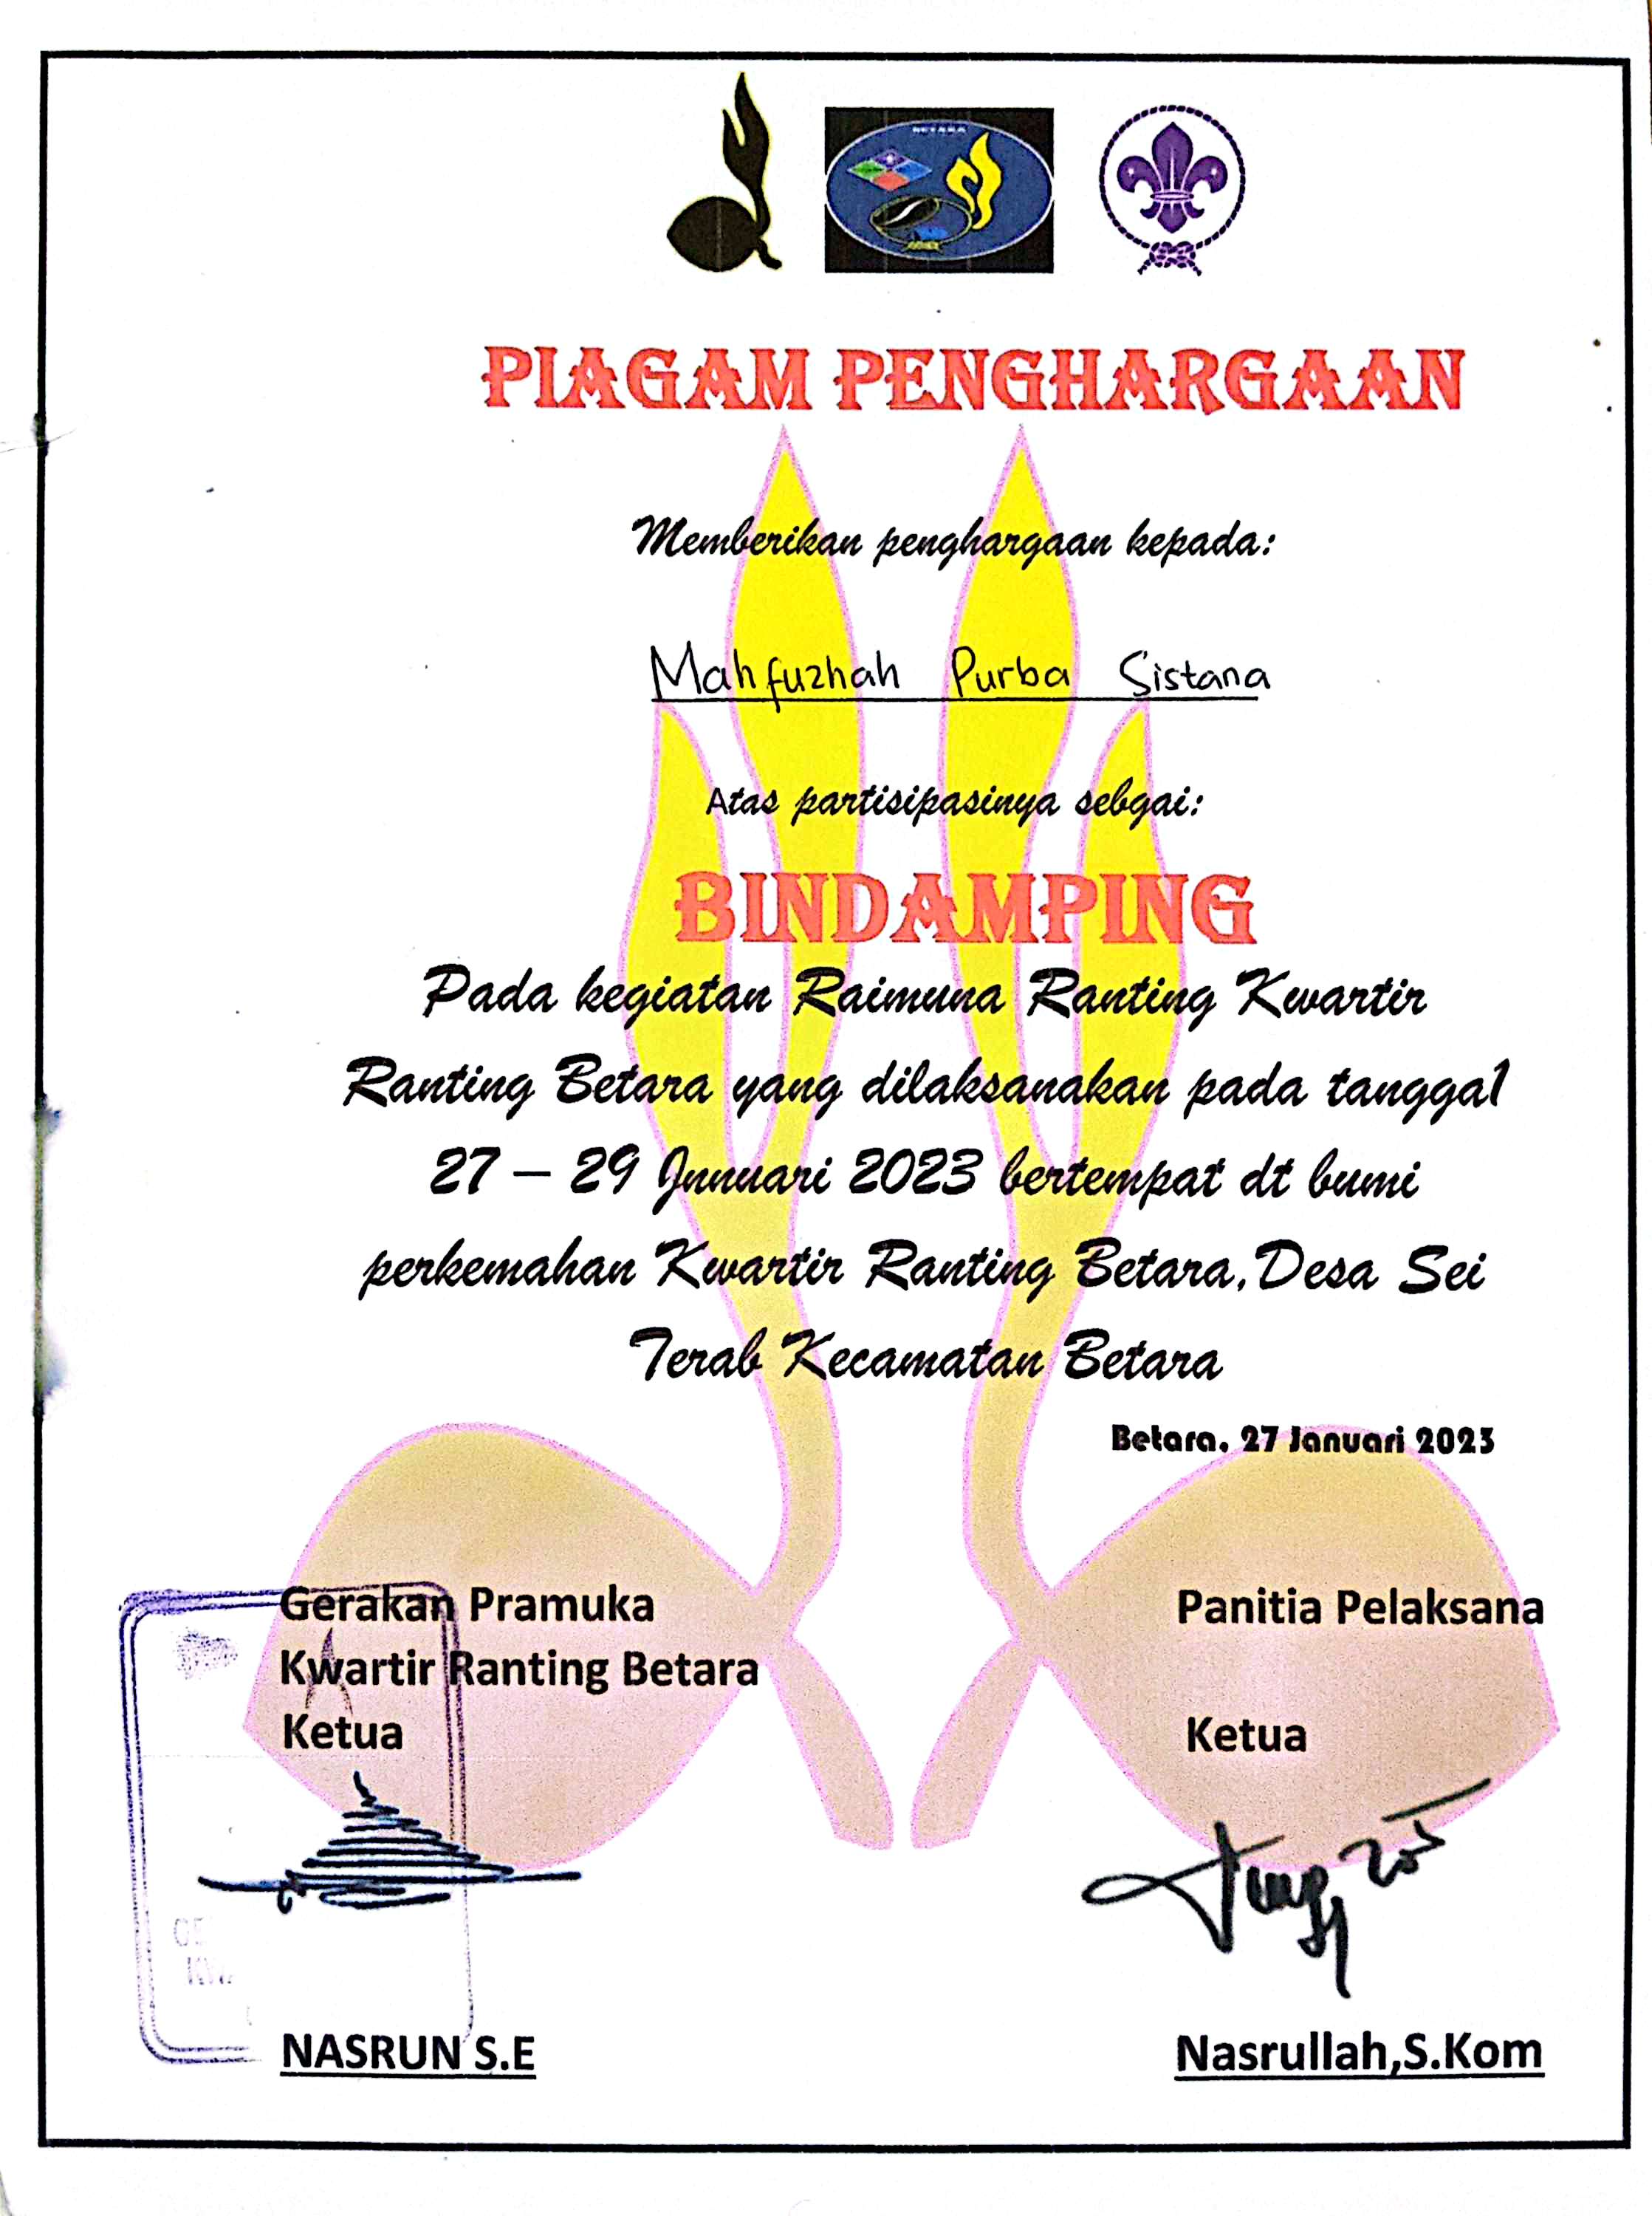 BETARA
PIAGAM PENGHARGAAN
Memberikan penghargaan kepada:
Mahfuzhah Purba Sistana
Atas partisipasinya sebgai:
BINDAMPING
Pada kegiatan Raimuna Ranting Kwartir
Ranting Betara yang dilaksanakan pada tanggal
27 – 29 Jnnuari 2023 bertempat dt bumi
perkemahan Kwartir Ranting Betara, Desa Sei
Terab Kecamatan Betara
Betara, 27 Januari 2023
Gerakan Pramuka
Kwartir Ranting Betara
Ketua
Panitia Pelaksana
Ketua
NASRUN S.E
Nasrullah,S.Kom